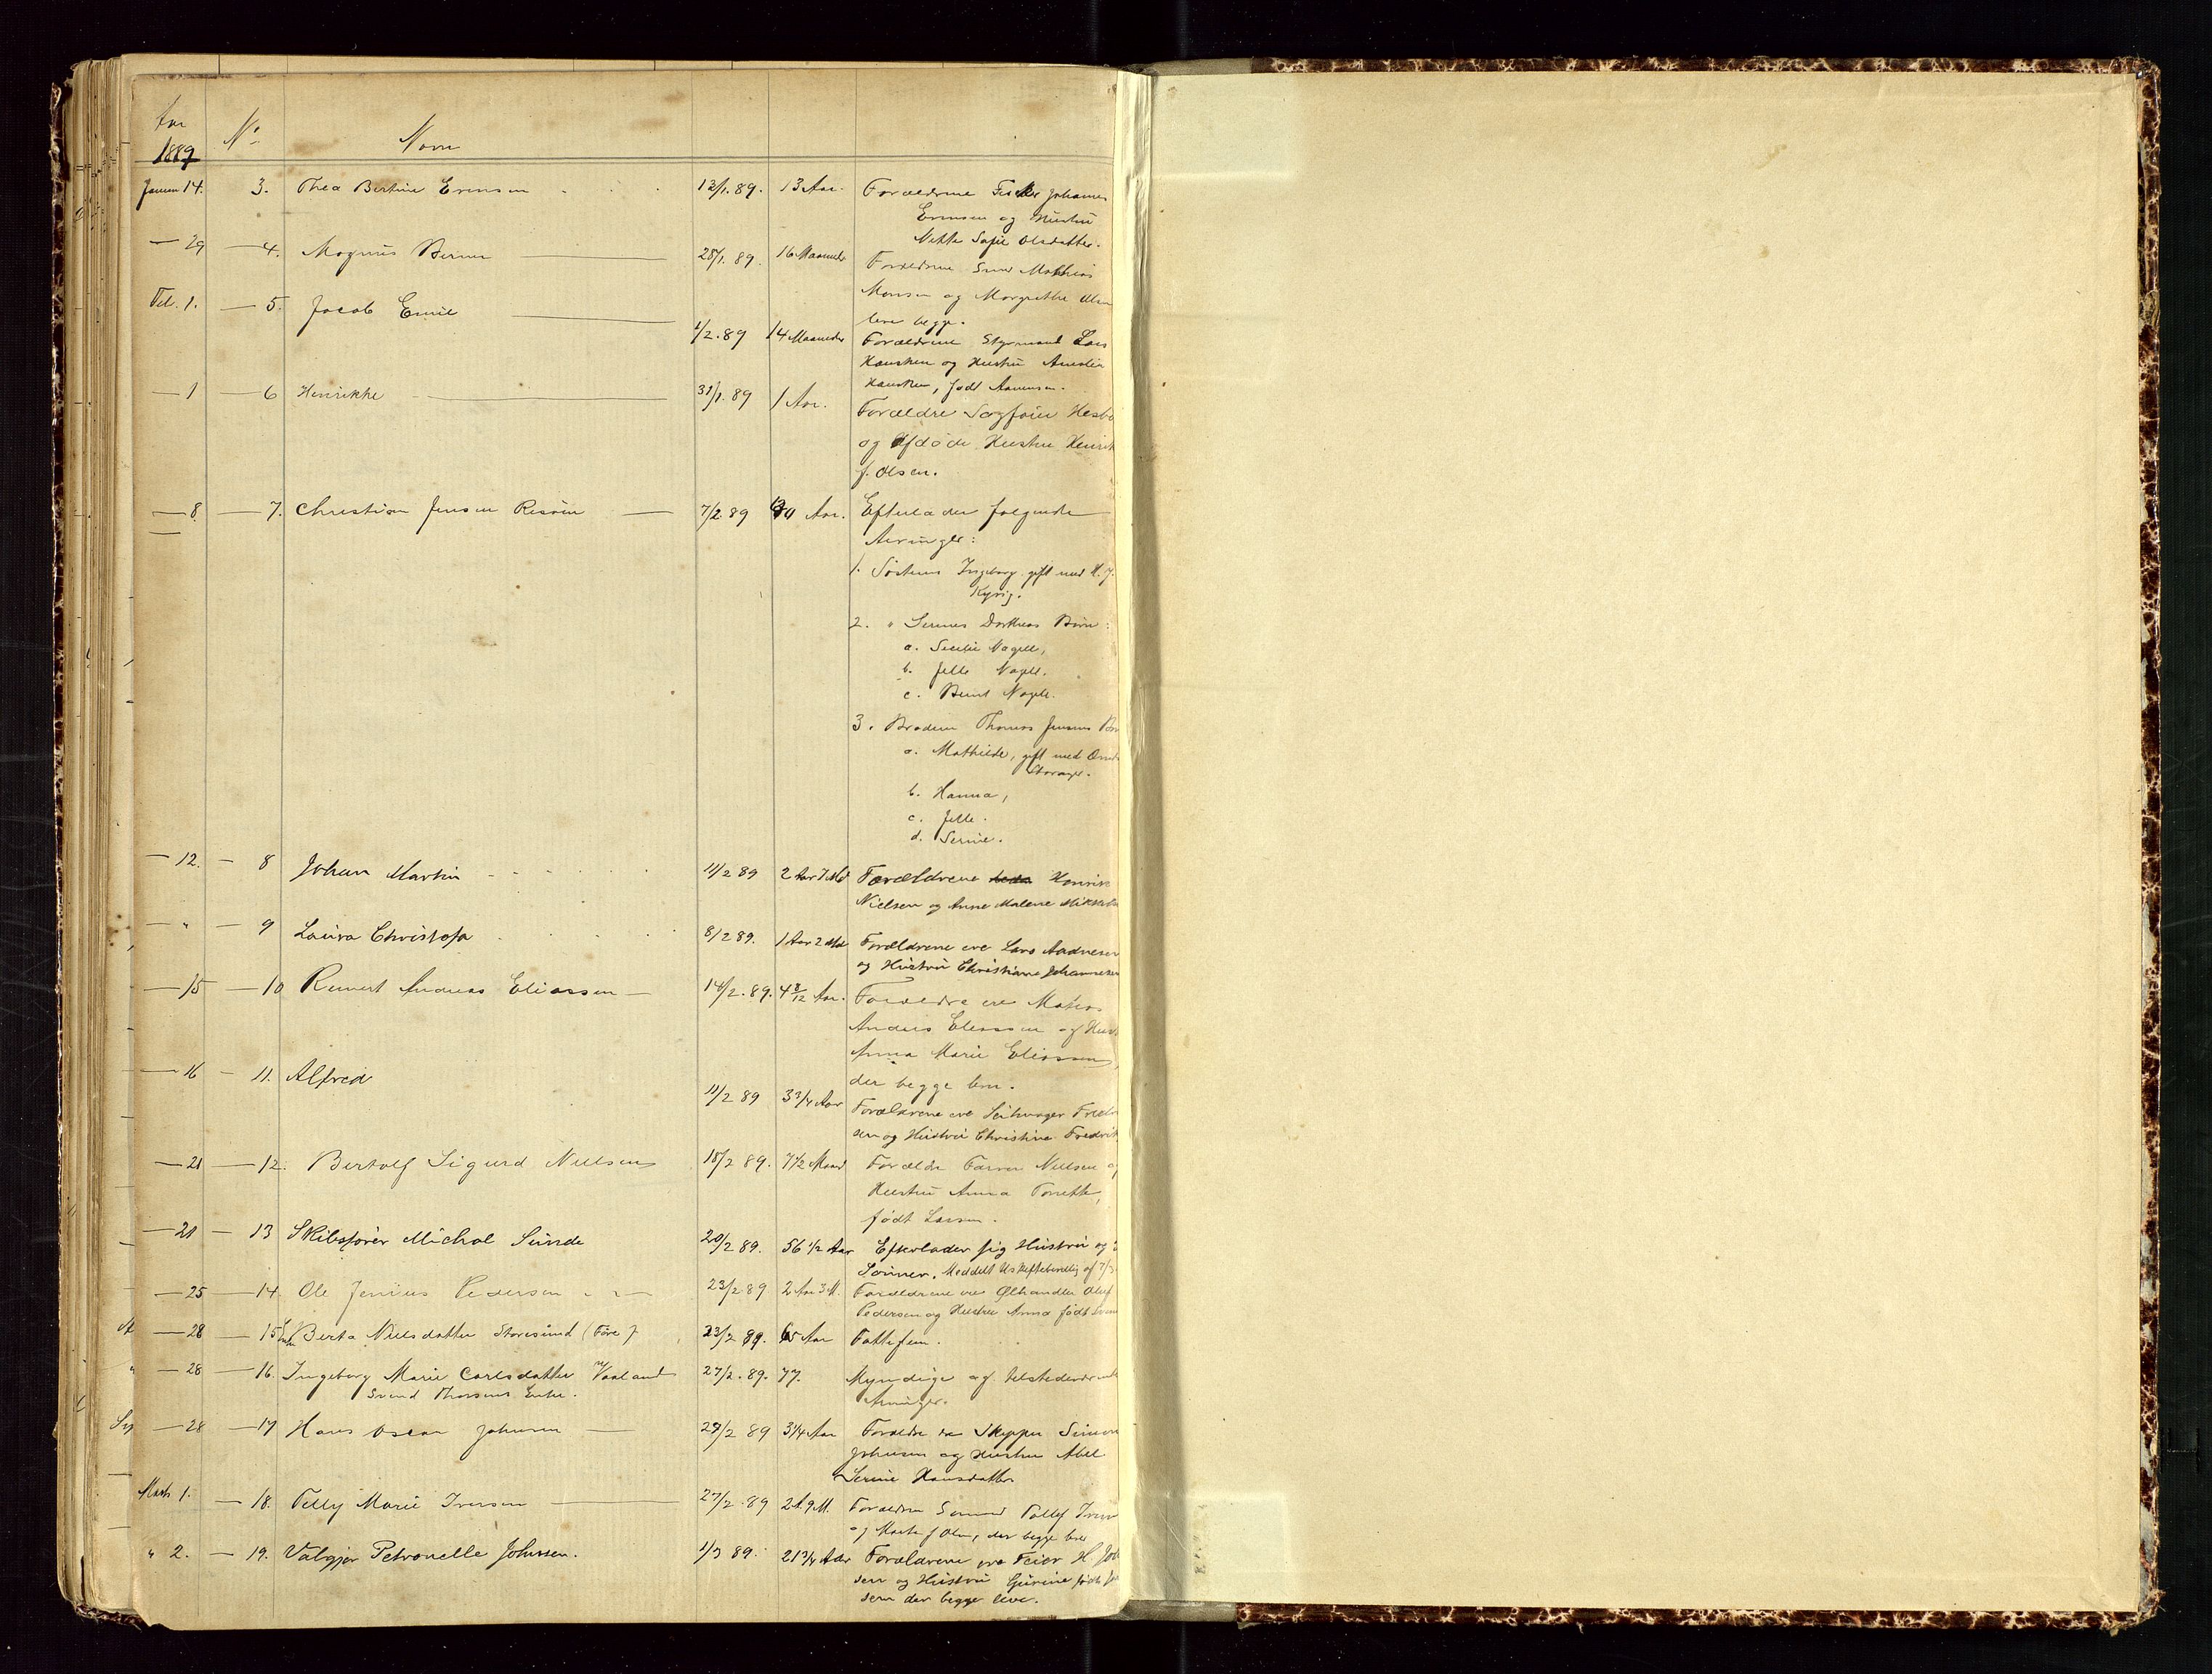 Aar
1889
No
Navn
Januar 14. 3. Thea Bertine Evensen 12/1. 89. 13 Aar. Forældrene Fisker Johannes
Evensen og Hustru
Mette Sofie Olsdatter.
— 29 — 4. Magnus Berner 28/1. 89. 16 Maaneder Forældrene Smed Mathias
Monsen og Margrethe Olsen
leve begge.
Feb. 1. — 5. Jacob Emil 1/2. 89 14 Maaneder Forældrene Styrmand Lars
Hansken og Hustru Amalie
Hansken, født Aanensen.
— 1 — 6 Henrikke 31/1. 89 1 Aar. Forældre
og Afdøde Hustru Henrik
f. Olsen.
— 8. — 7. Christian Jensen Risøen 7/2. 89 Aar. Efterlader følgende
Arvinger:
1. Søsteren Ingeborg gift med H. J.
2. " Serines Dortheas Børn:
a. Secilie Nagell,
b. Jelle Nagell.
c. Bernt Nagell.
3. Broderen Thomas Jensens
a. Mathilde, gift med
b. Hanna,
c. Jelle.
d. Serine.
— 12. — 8 Johan Martin 11/2 89 2 Aar 7 Md Forældrene Henrik
Nielsen og Anne Malene
— " — 9 Laura Christofa 8/2 89. 1 Aar 2 Md Forældrene ere Lars Andreesen
og Hustru Christiane Johannesen
— 15 — 10 Reinert Andreas Eliassen 14/2. 89. 4 8/12 Aar. Forældre ere Matros
Andreas Eliassen og
Anna Marie Eliassen,
der begge leve.
— 16 — 11. Alfred 11/2 89 3 3/4 Aar Forældrene ere
sen og Hustru Christine
— 21 — 12. Bertolf Sigurd Nielsen 18/2 89. 7 1/2 Maand Forældre Farver Nielsen
Hustru Anna Torette,
født Larsen.
— 21 — 13 Skibsfører Michal Sunde 20/2 89. 56 1/2 Aar Efterlader sig Hustru og
Sønner. Meddelt Uskiftebevilling af 7/3
— 25 — 14. Ole Jenius Pedersen 23/2 89 2 Aar 3 M. Forældrene ere Ølhandler Oluf
Pedersen og Hustru Anna født
— 28 — 15 Berta Nielsdatter Storesund 23/2 89. 65 Aar Fattiglem.
— 28 — 16. Ingeborg Marie Carlsdatter Vaaland 27/2. 89. 77. Myndige og tilstedeværende
Svend Thorsens Enke. Arvinger.
— 28 — 17 Hans Oscar Johnsen 28/2 89 3 1/4 Aar Forældre er Skipper Simon
Johnsen og Hustru Abel
Serine Hansdatter
Marts 1. — 18. Telly Marie Iversen 27/2. 89 2 A. 9 M. Forældre Tollef
og Marta f Olsen, der begge leve
" 2. — 19. Valgjør Petronelle Johnsen. 1/3 89. 21 3/4 Aar Forældrene ere Feier H.
sen og Hustru Gurine født
sen der begge leve.